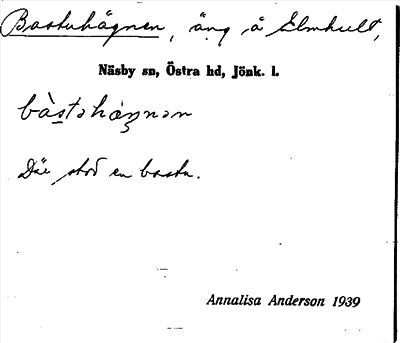 Bastuhägnen, äng å Elmhult,
Näsby sn, Östra hd, Jönk. l.
bàstəhàŋnən
Där stod en bastu.
Annalisa Anderson 1939